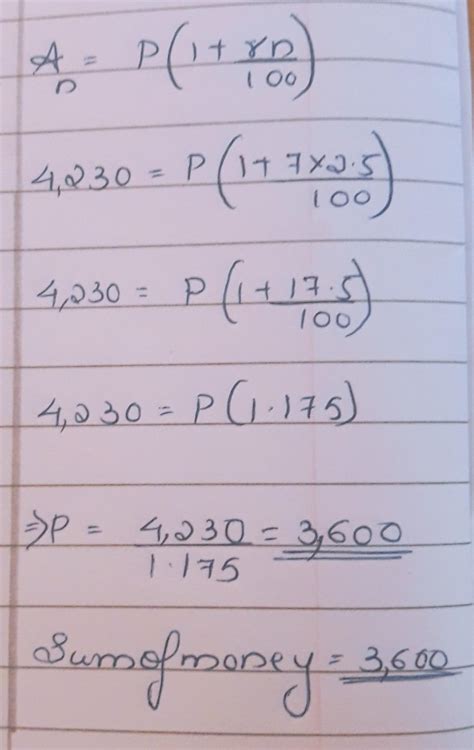 Aₙ = P(1 + rn/100)
4,230 = P(1 + 7×2.5/100)
4,230 = P(1 + 17.5/100)
4,230 = P(1.175)
⇒P = 4,230/1.175 = 3,600
Sum of money = 3,600